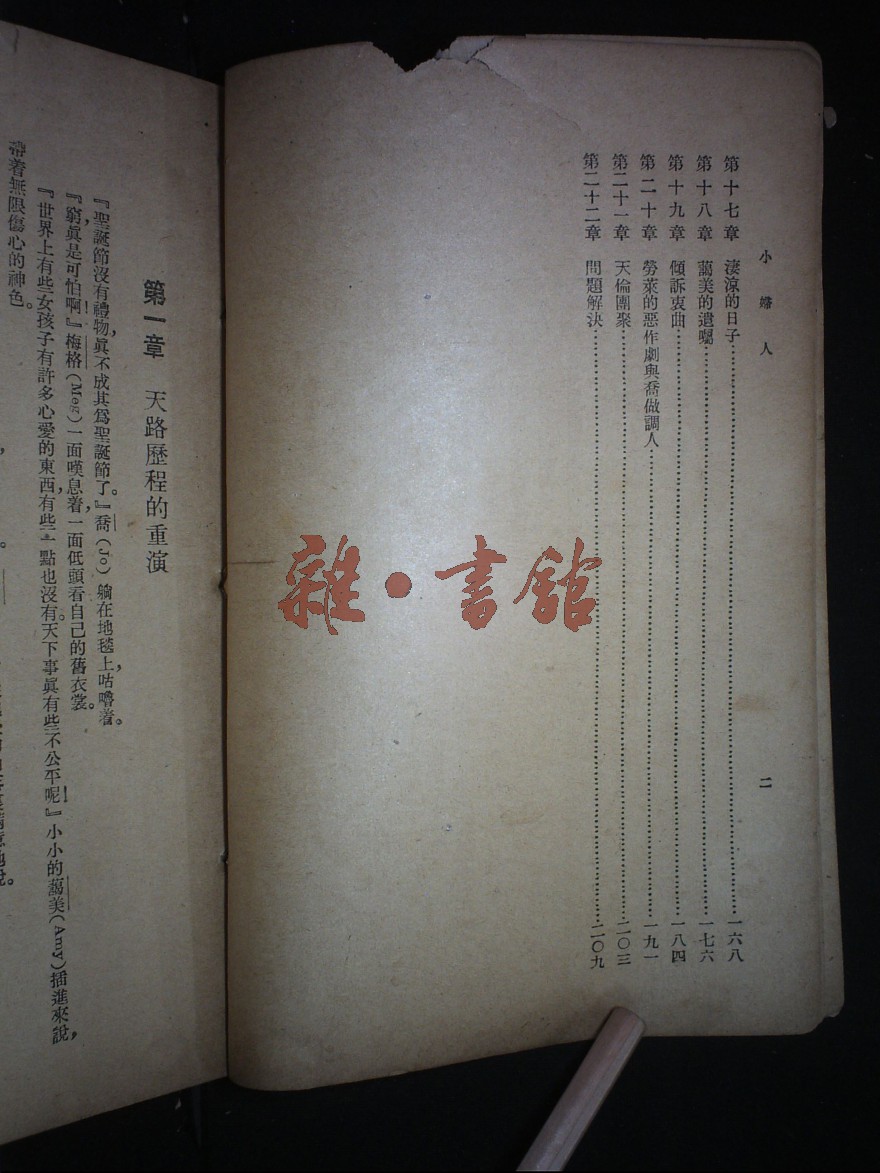 小婦人
二
第十七章 淒涼的日子……一六八
第十八章 藹美的遺囑……一七六
第十九章 傾訴衷曲……一八四
第二十章 勞萊的惡作劇與喬做調人……一九一
第二十一章 天倫團聚……二〇三
第二十二章 問題解決……二〇九
雜·書館
第一章 天路歷程的重演
『聖誕節沒有禮物,眞不成其爲聖誕節了。』喬(Jo)躺在地毯上咕嚕着。
『窮眞是可怕啊!』梅格(Meg)一面嘆息着,一面低頭看自己的舊衣裳。
『世界上有些女孩子有許多心愛的東西,有些一點也沒有。天下事眞有些不公平呢!』小小的藹美(Amy)插進來說,
帶着無限傷心的神色。